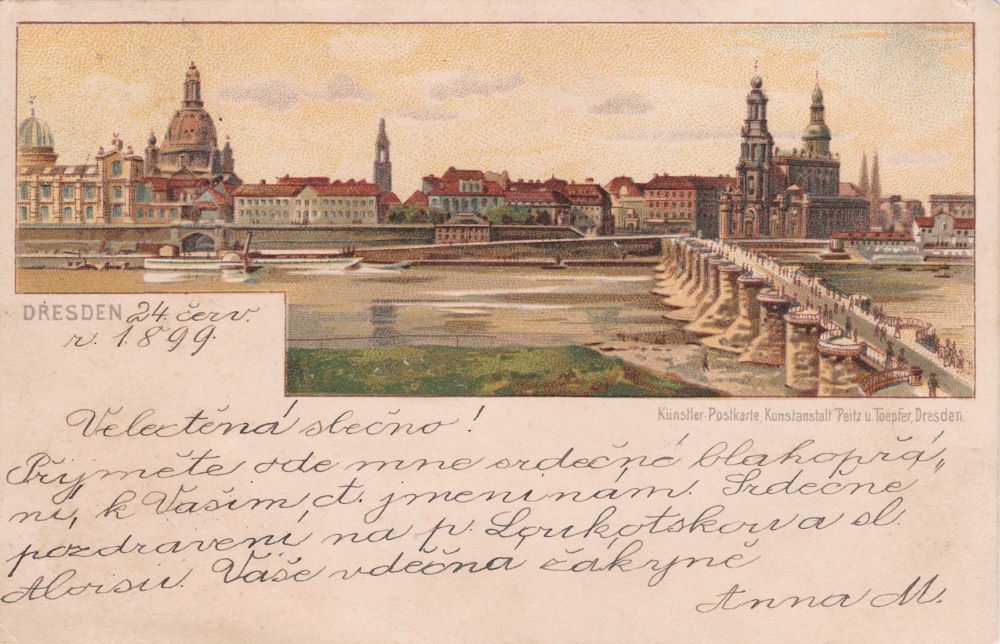 DRESDEN 24. červ.
r. 1899.
Künstler-Postkarte, Kunstanstalt Peitz u. Toepfer, Dresden.
Velectěná slečno!
Přijměte ode mne srdečné blahopřá„
ní, k Vašim ct. jmeninám. Srdečné
pozdravení na p. Loukotskou a sl.
Aloisii. Vaše vděčná žákyně
Anna M.